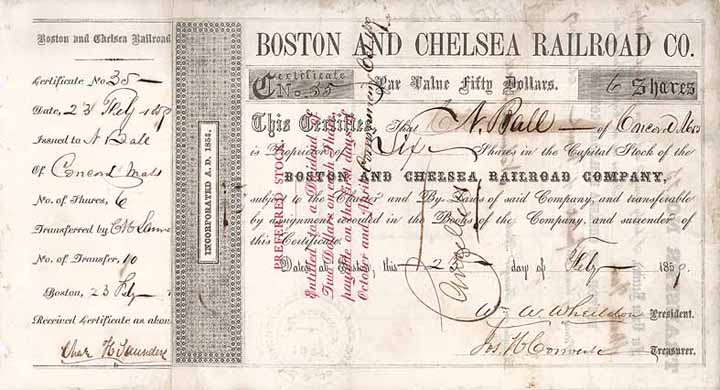 Boston and Chelsea Railroad
Certificate No. 35
Date, 23 Feby 1859
Issued to N Ball
Of Concord Mass
No. of Shares, 6
Transferred by
No. of Transfer, 10
Boston, 23 Feby
Received Certificate as above
Chas H Saunders
INCORPORATED A. D. 1854.
BOSTON AND CHELSEA RAILROAD CO.
Certificate No. 35
Par Value Fifty Dollars.
6 Shares
This Certifies That N. Ball of Concord Mass
is Proprietor of Six Shares in the Capital Stock of the
BOSTON AND CHELSEA RAILROAD COMPANY,
subject to the Charter and By-Laws of said Company, and transferable
by assignment recorded in the Books of the Company, and surrender of
this Certificate.
Dated at Boston, this 23 day of Feby 1859.
W. W. Wheildon President.
Jos. H Converse Treasurer.
PREFERRED STOCK.
Entitled to a Dividend of
Two Dollars on each Share
payable on the first days of
October and April
Cancelled